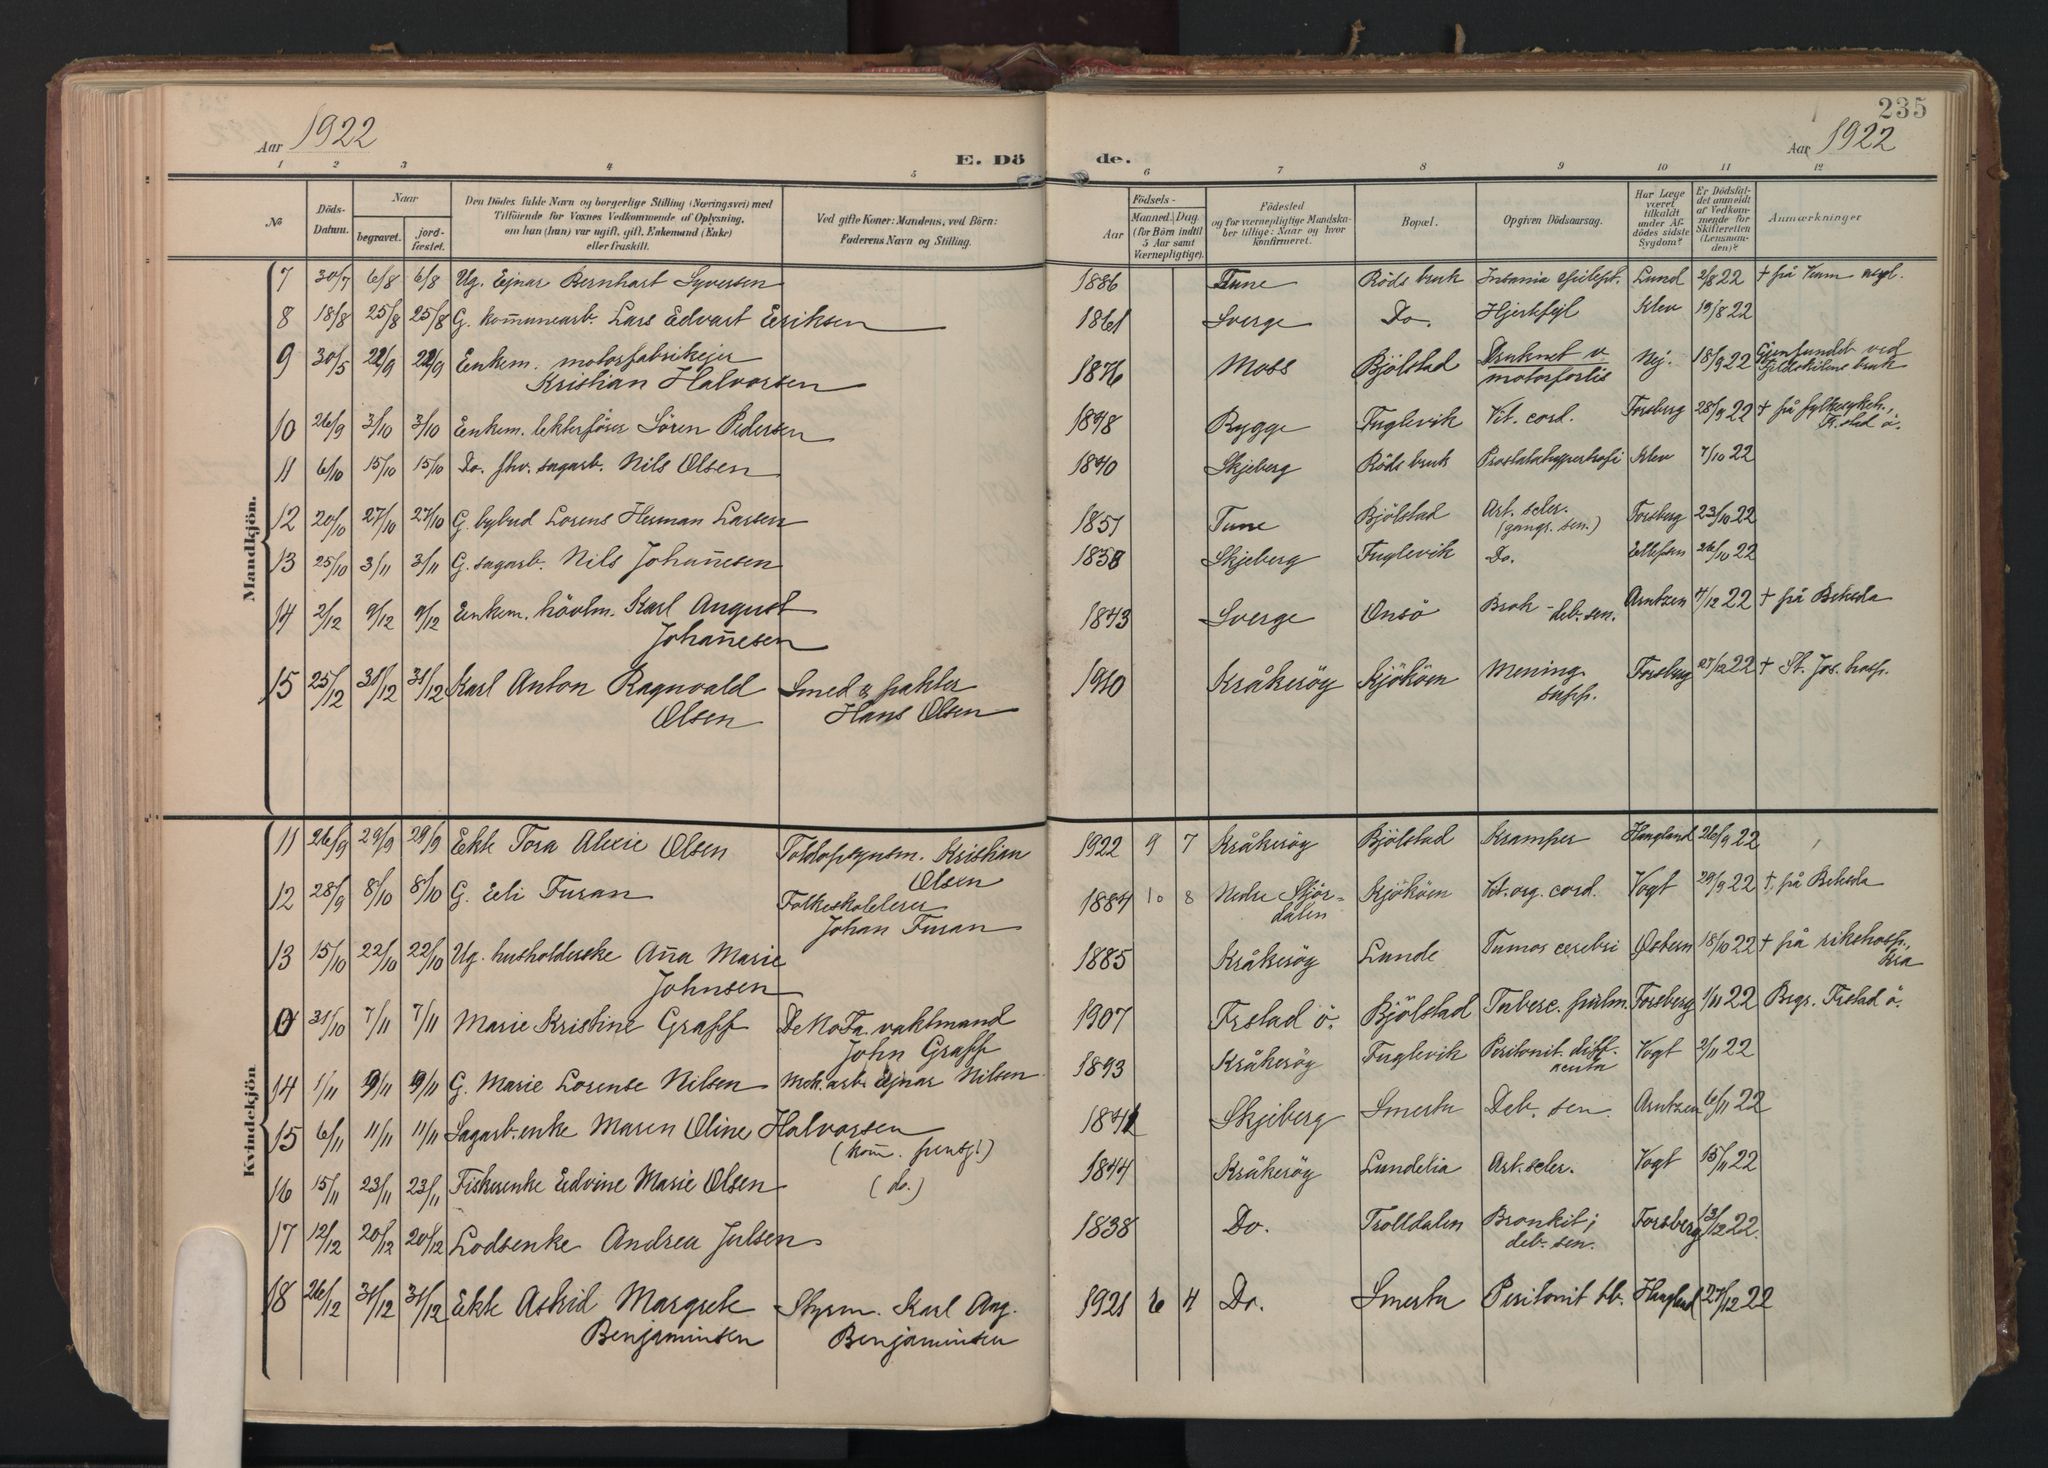 235
Aar 1922
E. Dö de.
Aar 1922
1 2 3 4 5 6 7 8 9 10 11 12
№
Döds-Datum.
Naar
begravet.
jord-fæstet.
Den Dödes fulde Navn og borgerlige Stilling (Næringsvei) med
Tilföiende for Voxnes Vedkommende af Oplysning,
om han (hun) var ugift, gift, Enkemand (Enke)
eller fraskilt.
Ved gifte Koner: Mandens, ved Börn:
Faderens Navn og Stilling.
Födsels-
Aar
Maaned. Dag.
(for Börn indtil
5 Aar samt
Værnepligtige).
Födested
og for værnepligtige Mandska-
ber tillige: Naar og hvor
konfirmeret.
Bopæl.
Opgiven Dödsaarsag.
Har Læge
været
tilkaldt
under Af-
dödes sidste
Sygdom?
Er Dödsfal-
det anmeldt
af Vedkom-
mende for
Skifteretten
(Lensman-
den)?
Anmærkninger
Mandkjön.
7 30/7 6/8 6/8 Ug. Ejnar Bernhart Syversen 1886 Tune Röds bruk Insania epilept. Lund 2/8 22 † på Kum asyl.
8 18/8 25/8 25/8 G. kom̄unearb. Lars Edvart Eriksen 1861 Sverge Do. Hjertefejl Klev 19/8 22
9 30/5 22/9 22/9 Enkem. motorfabrikejer 1876 Moss Bjölstad Druknet v Nej. 18/9 22 Gjenfundet ved
Kristian Halvorsen motorforlis bruk
10 26/9 3/10 3/10 Enkem. lekterförer Sören Pedersen 1848 Rygge Fuglevik Vit. cord. Forsberg 28/9 22 † på fylkesykeh.,
F.stad ö.
11 6/10 15/10 15/10 Do. fhv. sagarb. Nils Olsen 1840 Skjeberg Röds bruk Prostatahypertrofi Klev 7/10 22
12 20/10 27/10 27/10 G. bybud Lorens Herman Larsen 1851 Tune Bjölstad Art. scler. Forsberg 23/10 22
(gangr. sen.)
13 25/10 3/11 3/11 G. sagarb. Nils Johan̄esen 1838 Skjeberg Fuglevik Do. Ellefsen 26/10 22
14 2/12 9/12 9/12 Enkem. hövlm. Karl August 1843 Sverge Onsö Brok - Arntzen 4/12 22 † på Beheda
Johan̄esen deb. sen.
15 25/12 31/12 31/12 Karl Anton Ragnvald Smed & pakter 1910 Kråkeröy Kjököen Mening. Forsberg 27/12 22 † St. Jos. hosp.
Olsen Hans Olsen supp.
Kvindekjön
11 26/9 29/9 29/9 Ekte Tora Alvie Olsen Toldopsynsm. Kristian 1922 9 7 Kråkeröy Bjölstad Kramper Haugland 26/9 22
Olsen
12 28/9 8/10 8/10 G. Eli Furan Folkeskolelærer 1884 10 8 Nedre Stjör- Kjököen Vit. org. cord. Vogt 29/9 22 † på Beheda
Johan Furan dalen
13 15/10 22/10 22/10 Ug. husholderske An̄a Marie 1885 Kråkeröy Lunde Tumor cerebri Ostern 18/10 22 † på rikshosp.,
Johnsen Kra
0 31/10 7/11 7/11 Marie Kristine Graff DeNoFa vaktmand 1907 Frstad ö. Bjölstad Tuberc. pulm. Forsberg 1/11 22 Begr. Frstad ö.
John Graff
14 1/11 9/11 9/11 G. Marie Lorense Nilsen Mek. arb. Ejnar Nilsen 1893 Kråkeröy Fuglevik Peritonit. diff. Vogt 2/11 22
acuta
15 6/11 11/11 11/11 Sagarb.enke Maren Oline Halvorsen 1841 Skjeberg Smerta Deb. sen. Arntzen 6/11 22
(kom̄. pensj.)
16 15/11 23/11 23/11 Fiskerenke Edvine Marie Olsen (do.) 1844 Kråkeröy Lundelia Art. scler. Vogt 15/11 22
17 12/12 20/12 20/12 Lodsenke Andrea Julsen 1838 Do. Trolldalen Bronkit; Forsberg 13/12 22.
deb. sen.
18 26/12 31/12 31/12 Ekte Astrid Margrete Styrm. Karl Aug. 1921 6 4 Do. Smerta Peritonit tb. Haugland 27/12 22
Benjaminsen Benjaminsen